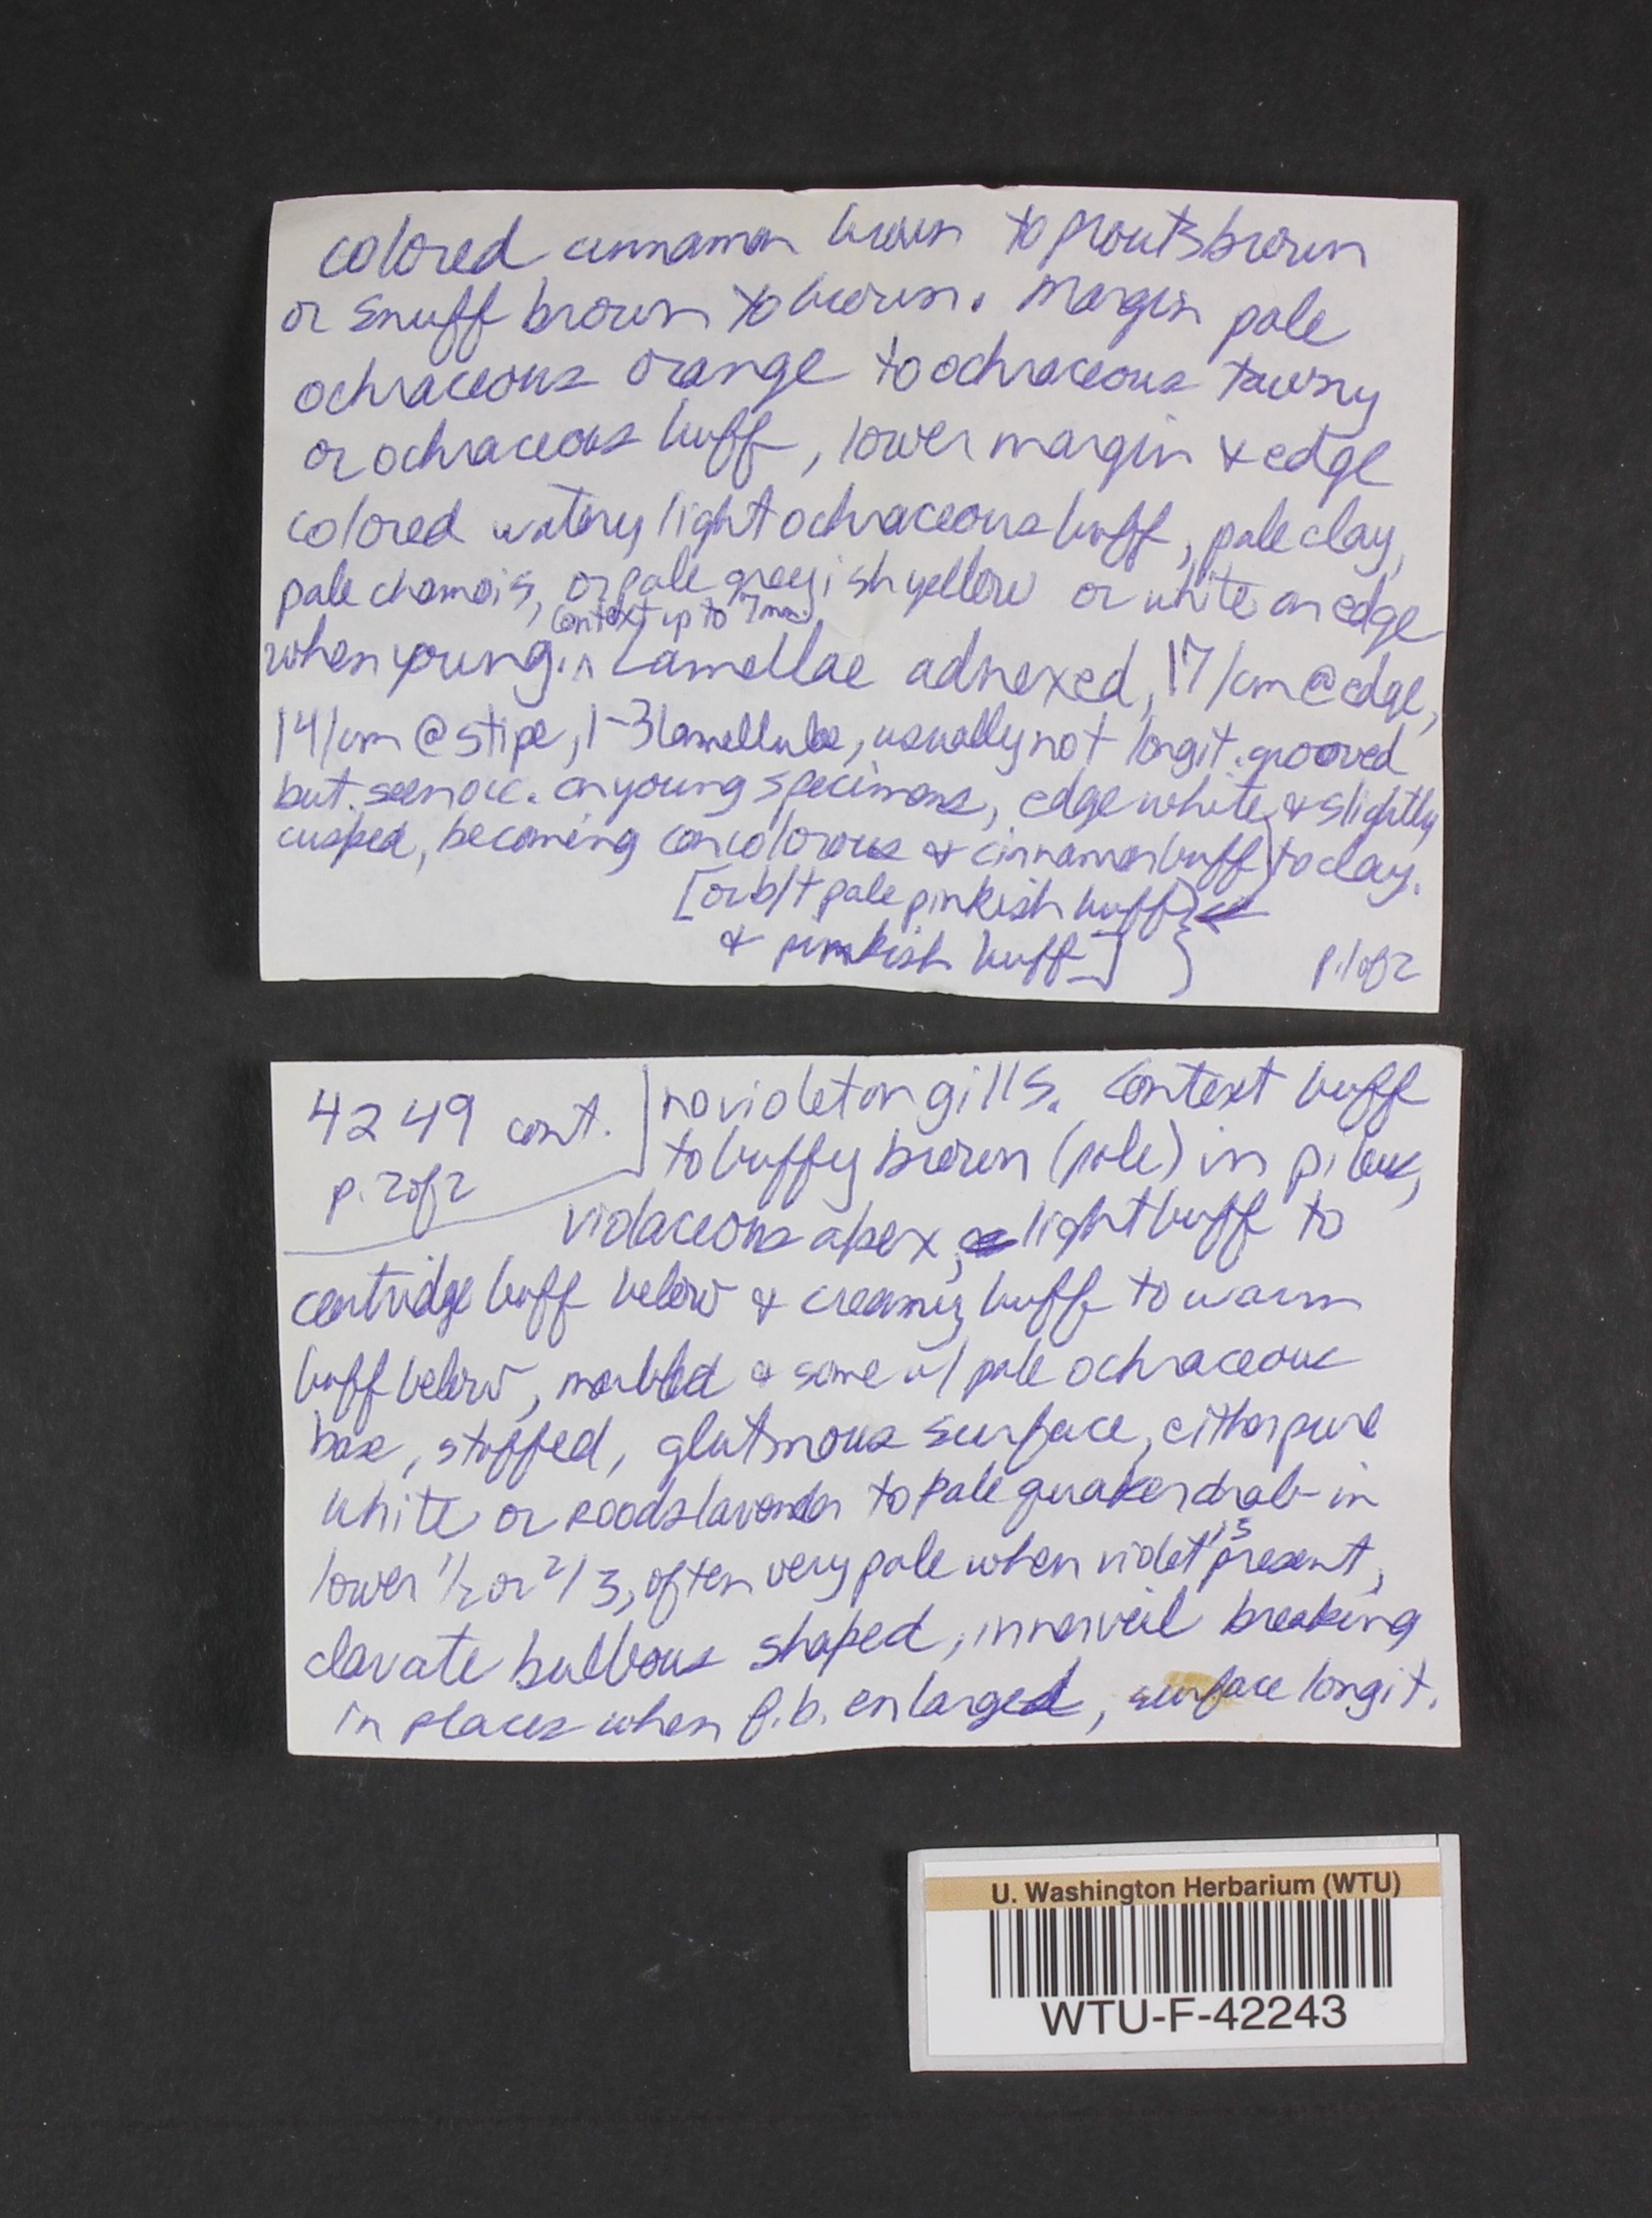 colored cinnamon brown to prouts brown
or snuff brown to brown. Margin pale
ochraceous orange to ochraceous tawny
or ochraceous buff, lower margin & edge
colored watery light ochraceous buff, pale clay,
pale chamois, or pale greyish yellow or white on edge
context up to 7mm.
when young. ^ Lamellae adnexed, 17/cm @ edge,
14/cm @ stipe, 1-3 lamellulae, usually not longit. grooved
but seen occ. on young specimens, edge white & slightly
cusped, becoming concolorous & cinnamon buff} to clay.
[or b/t pale pinkish buff}
& pinkish buff] }
p. 1 of 2
4249 cont.
p. 2 of 2
no violet on gills. Context buff
to buffy brown (pale) in pileus,
violaceous apex, light buff to
cartridge buff below & creamy buff to warm
buff below, marbled & some w/ pale ochraceous
base, stuffed, glutinous surface, either pure
white or roods lavender to pale quaker drab in
lower 1/2 or 2/3, often very pale when violet is present,
clavate bulbous shaped, inner veil breaking
in places when f.b. enlarged, surface longit.
U. Washington Herbarium (WTU)
WTU-F-42243